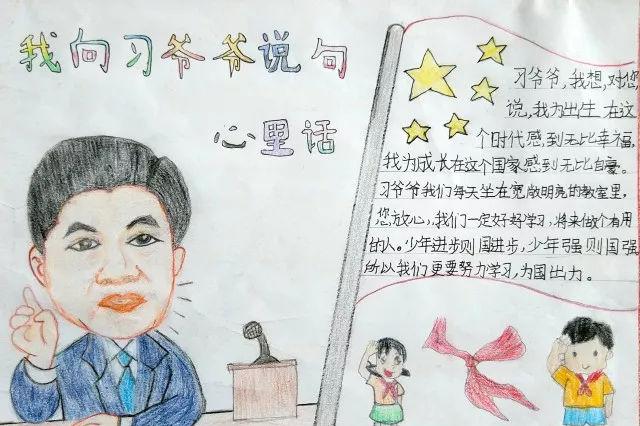 我向习爷爷说句
心里话
习爷爷,我想,对您
说,我为出生在这
个时代感到无比幸福,
我为成长在这个国家感到无比自豪。
习爷爷我们每天坐在宽敞明亮的教室里,
您放心,我们一定好好学习,将来做个有用
的人。少年进步则国进步,少年强则国强
所以我们更要努力学习,为国出力。